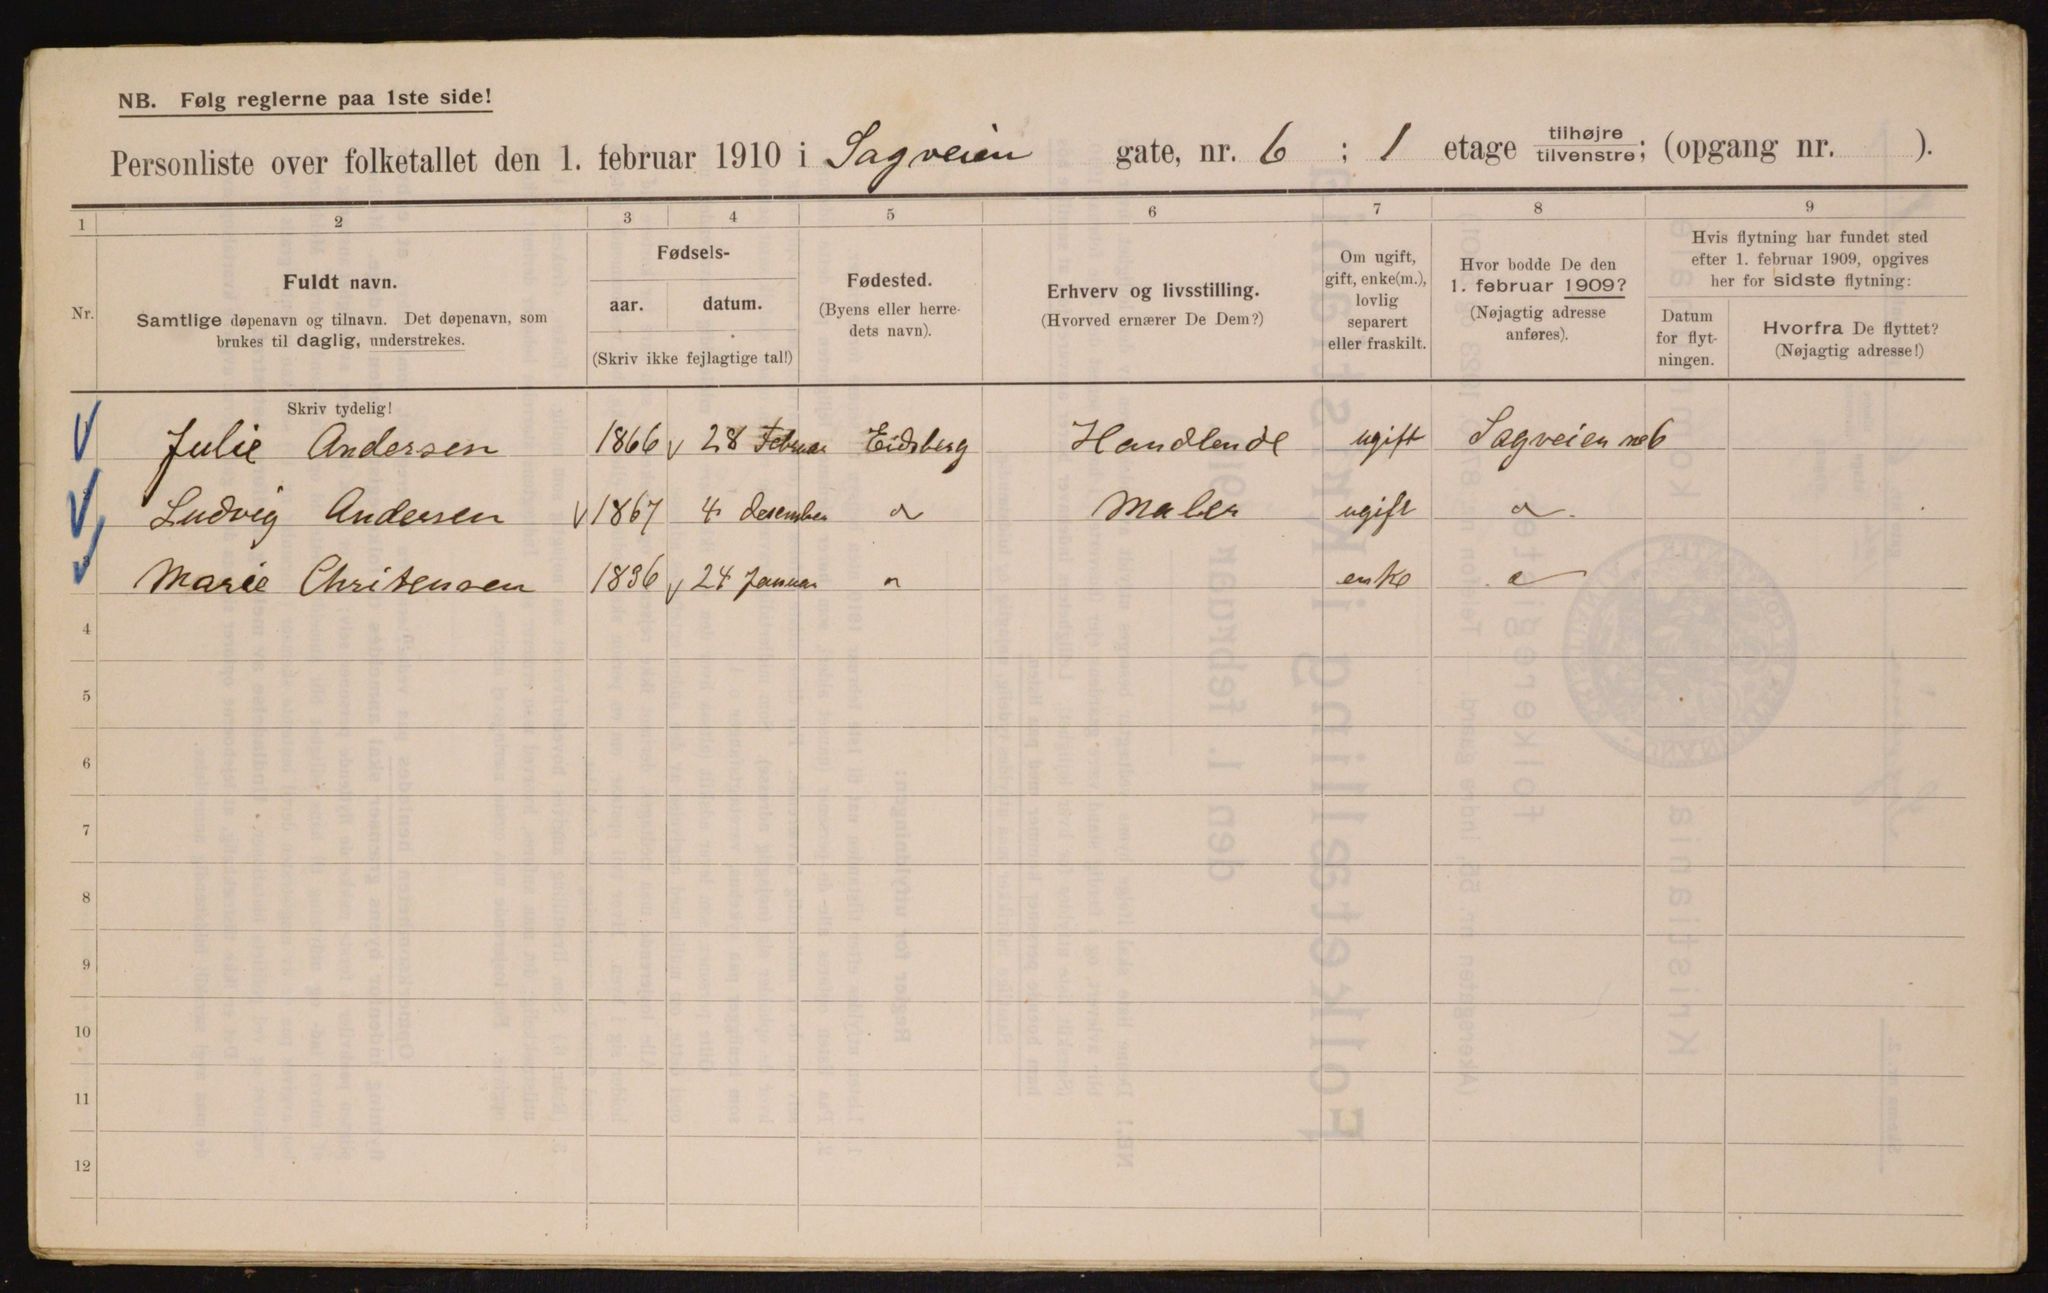 NB. Følg reglerne paa 1ste side!
Personliste over folketallet den 1. februar 1910 i Sagveien gate, nr. 6 ; 1 etage tilhøjre tilvenstre; (opgang nr. ).
1 2 3 4 5 6 7 8 9
Nr.
Fuldt navn.
Samtlige døpenavn og tilnavn. Det døpenavn, som
brukes til daglig, understrekes.
Fødsels-
aar. datum.
(Skriv ikke fejlagtige tal!)
Fødested.
(Byens eller herre-
dets navn).
Erhverv og livsstilling.
(Hvorved ernærer De Dem?)
Om ugift,
gift, enke(m.),
lovlig
separert
eller fraskilt.
Hvor bodde De den
1. februar 1909?
(Nøjagtig adresse
anføres).
Hvis flytning har fundet sted
efter 1. februar 1909, opgives
her for sidste flytning:
Datum
for flyt-
ningen.
Hvorfra De flyttet?
(Nøjagtig adresse!)
Skriv tydelig!
Julie Andersen 1866 28 Februar Eidsberg Handlende ugift Sagveien no 6
Ludvig Andersen 1867 4 desember Maler ugift
Marie Chritensen 1836 24 Januar enke
4
5
6
7
8
9
10
11
12